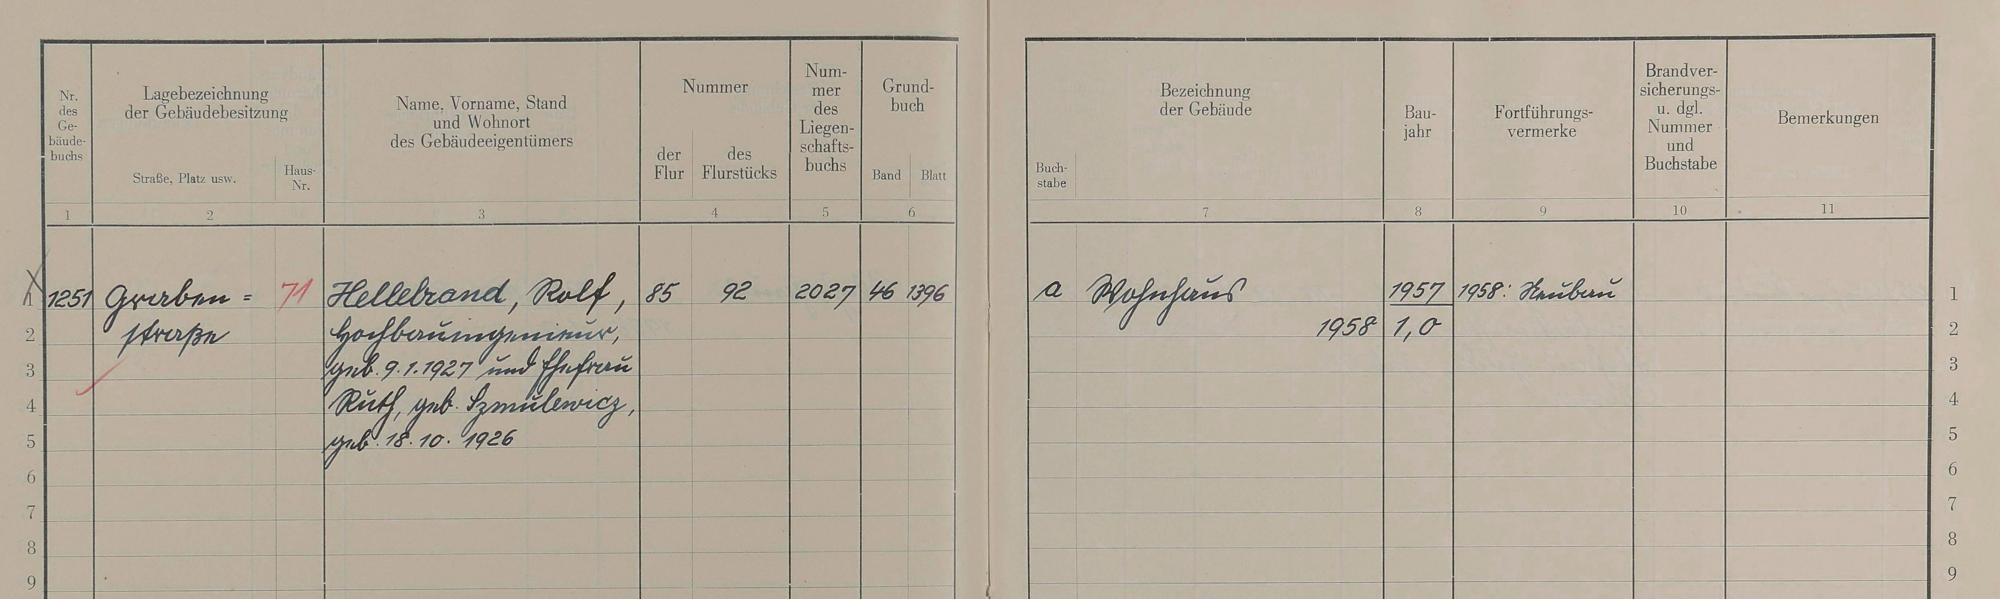 Nr.
des
Ge-
bäude-
buchs
Lagebezeichnung
der Gebäudebesitzung
Straße, Platz usw.
Haus-
Nr.
Name, Vorname, Stand
und Wohnort
des Gebäudeeigentümers
Nummer
der
Flur
des
Flurstücks
Num-
mer
des
Liegen-
schafts-
buchs
Grund-
buch
Band
Blatt
Buch-
stabe
Bezeichnung
der Gebäude
Bau-
jahr
Fortführungs-
vermerke
Brandver-
sicherungs-
u. dgl.
Nummer
und
Buchstabe
Bemerkungen
1 2 3 4 5 6 7 8 9 10 11
1 1251 Graben= 71 Hellebrand, Rolf, 85 92 2027 46 1396 a Wohnhaus 1957 1958: Neubau 1
2 straße Hochbauingenieur, 1958 1,0 2
3 geb. 9.1.1927 und Ehefrau 3
4 Ruth, geb. Szmulewicz, 4
5 geb. 18.10.1926 5
6 6
7 7
8 8
9 9